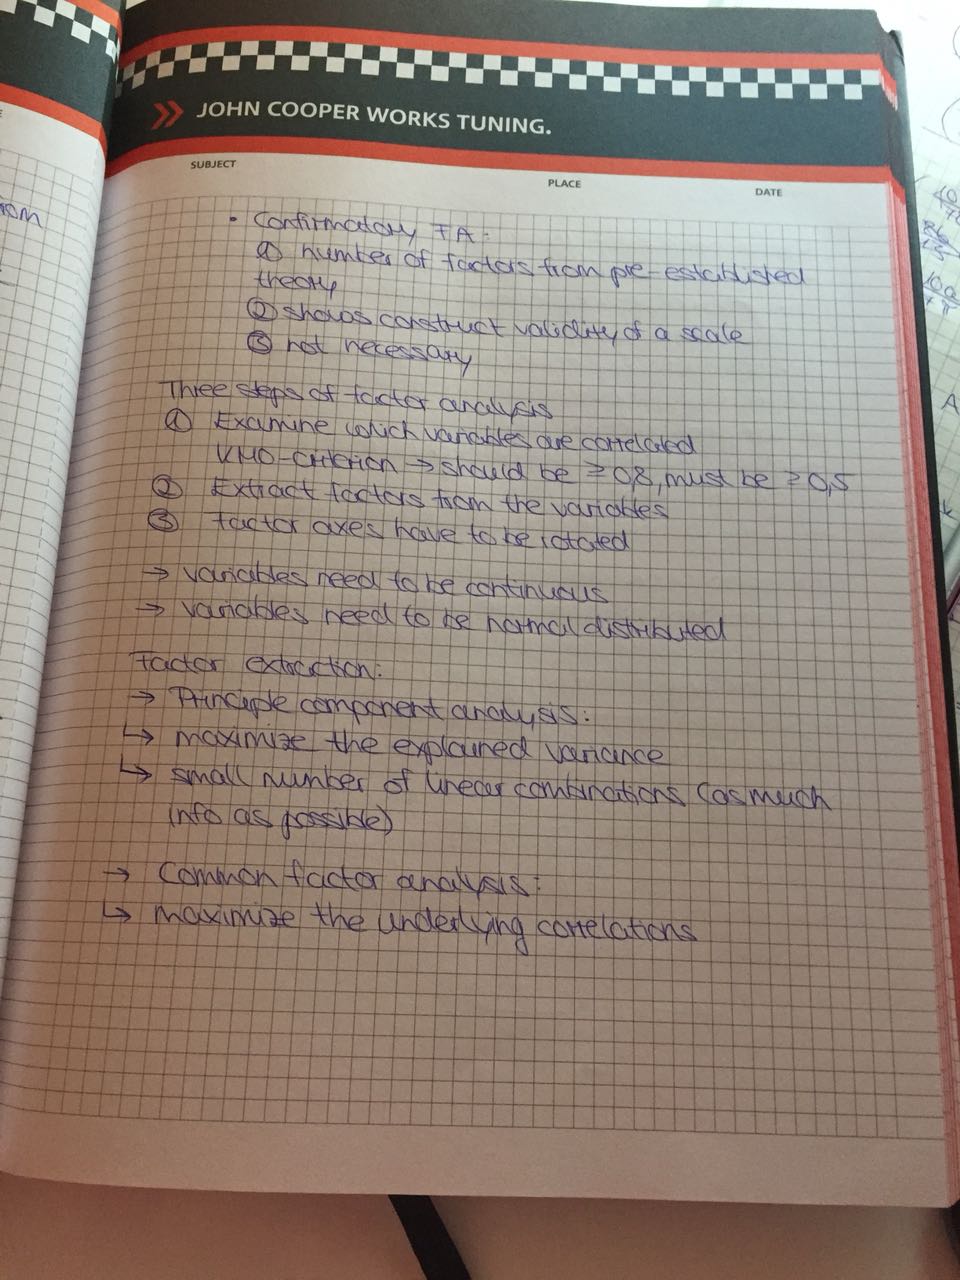 JOHN COOPER WORKS TUNING.
SUBJECT
PLACE
DATE
• Confirmatory FA:
① number of factors from pre-established
theory
② shows construct validity of a scale
③ not necessary
Three steps of factor analysis
① Examine which variables are correlated
KMO-criterion → should be ≥ 0,8, must be ≥ 0,5
② Extract factors from the variables
③ factor axes have to be rotated
→ variables need to be continuous
→ variables need to be normal distributed
Factor extraction:
→ Principle component analysis:
↳ maximize the explained variance
↳ small number of linear combinations (as much
info as possible)
→ Common factor analysis:
↳ maximize the underlying correlations